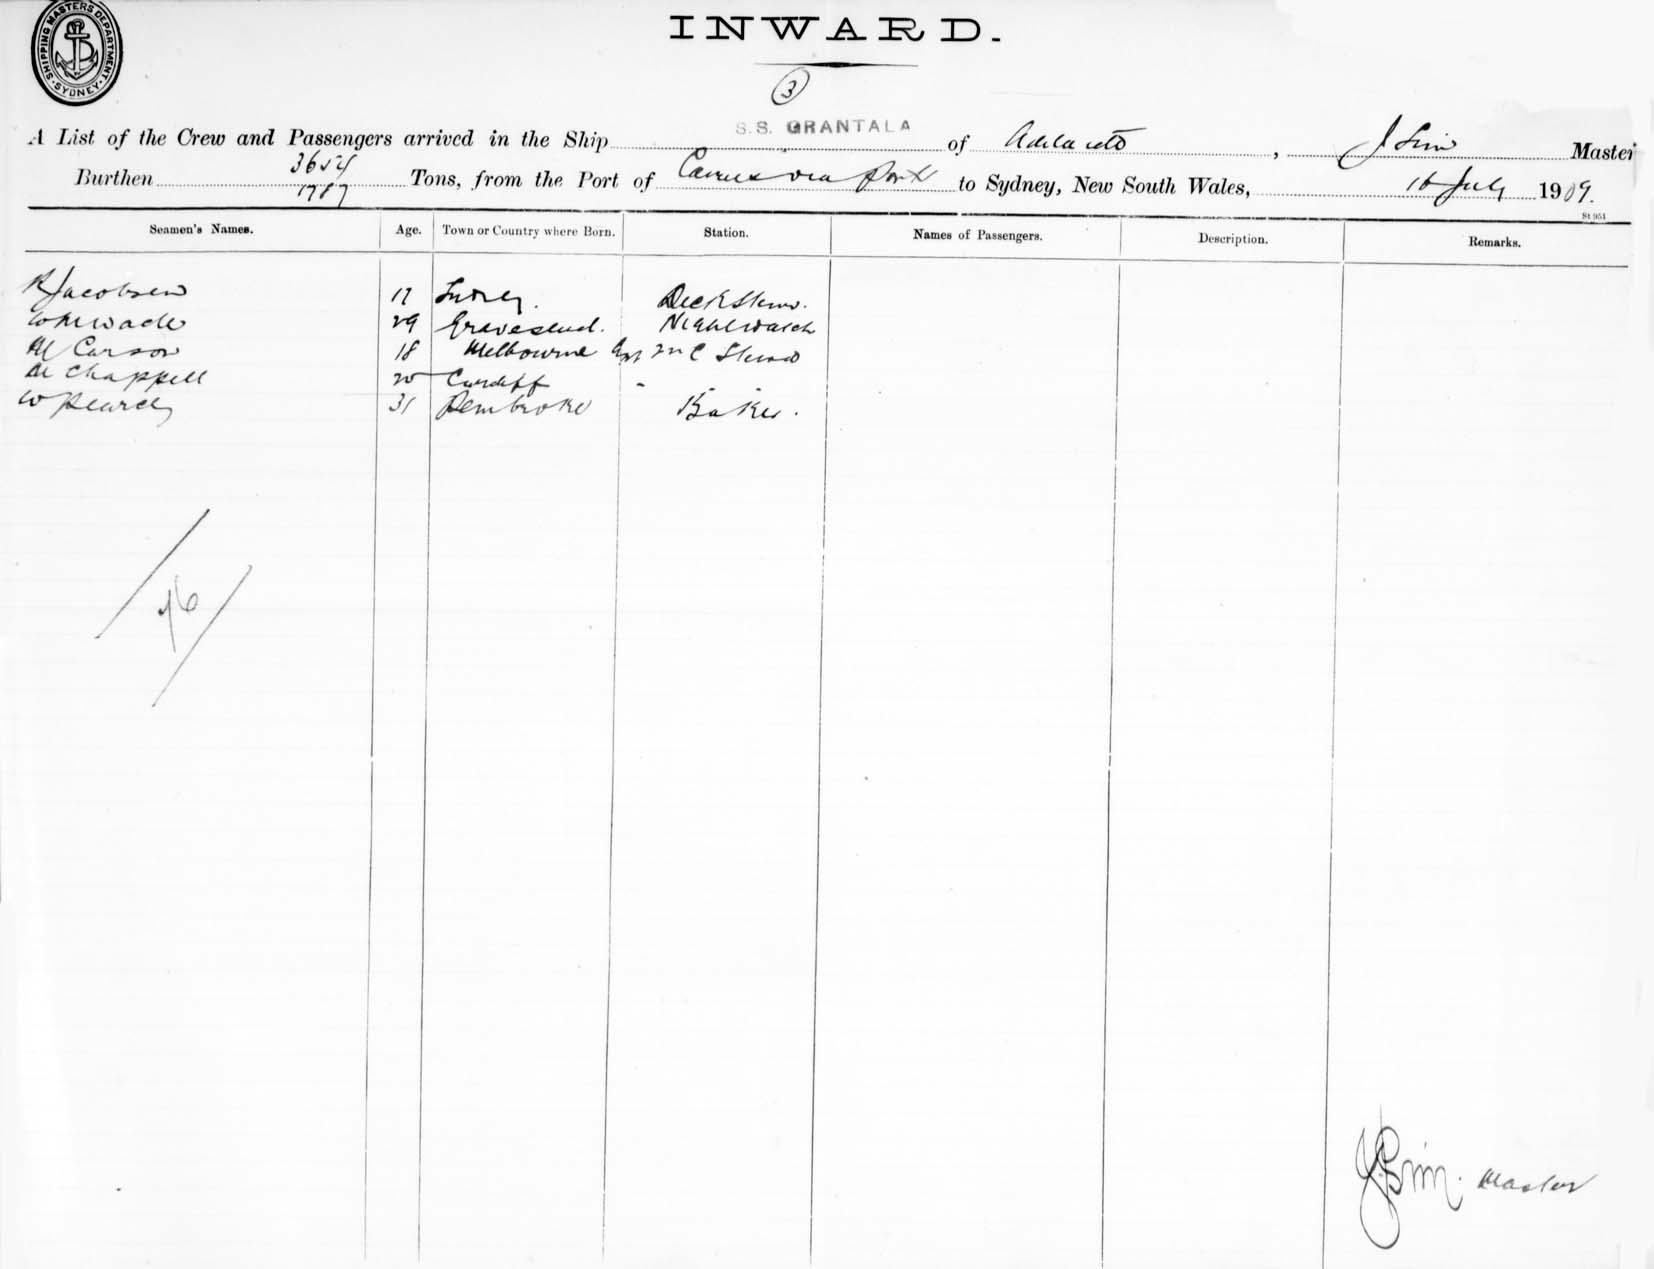 SHIPPING MASTERS DEPARTMENT SYDNEY
INWARD.
3
A List of the Crew and Passengers arrived in the Ship S.S. GRANTALA of Adelaide, J Sim Master
Burthen 3654 1787 Tons, from the Port of Cairns via Ports to Sydney, New South Wales, 16 July 1909.
St 951
Seamen's Names. Age. Town or Country where Born. Station. Names of Passengers. Description. Remarks.
R Jacobsen 17 Sydney. Deck Stewd.
W Wade 29 Gravesend. Nightwatch
Carson 18 Melbourne Stewd
M Chappell 20 Cardiff "
W Pearce 31 Pembroke Baker.
76
J. Sim. Master